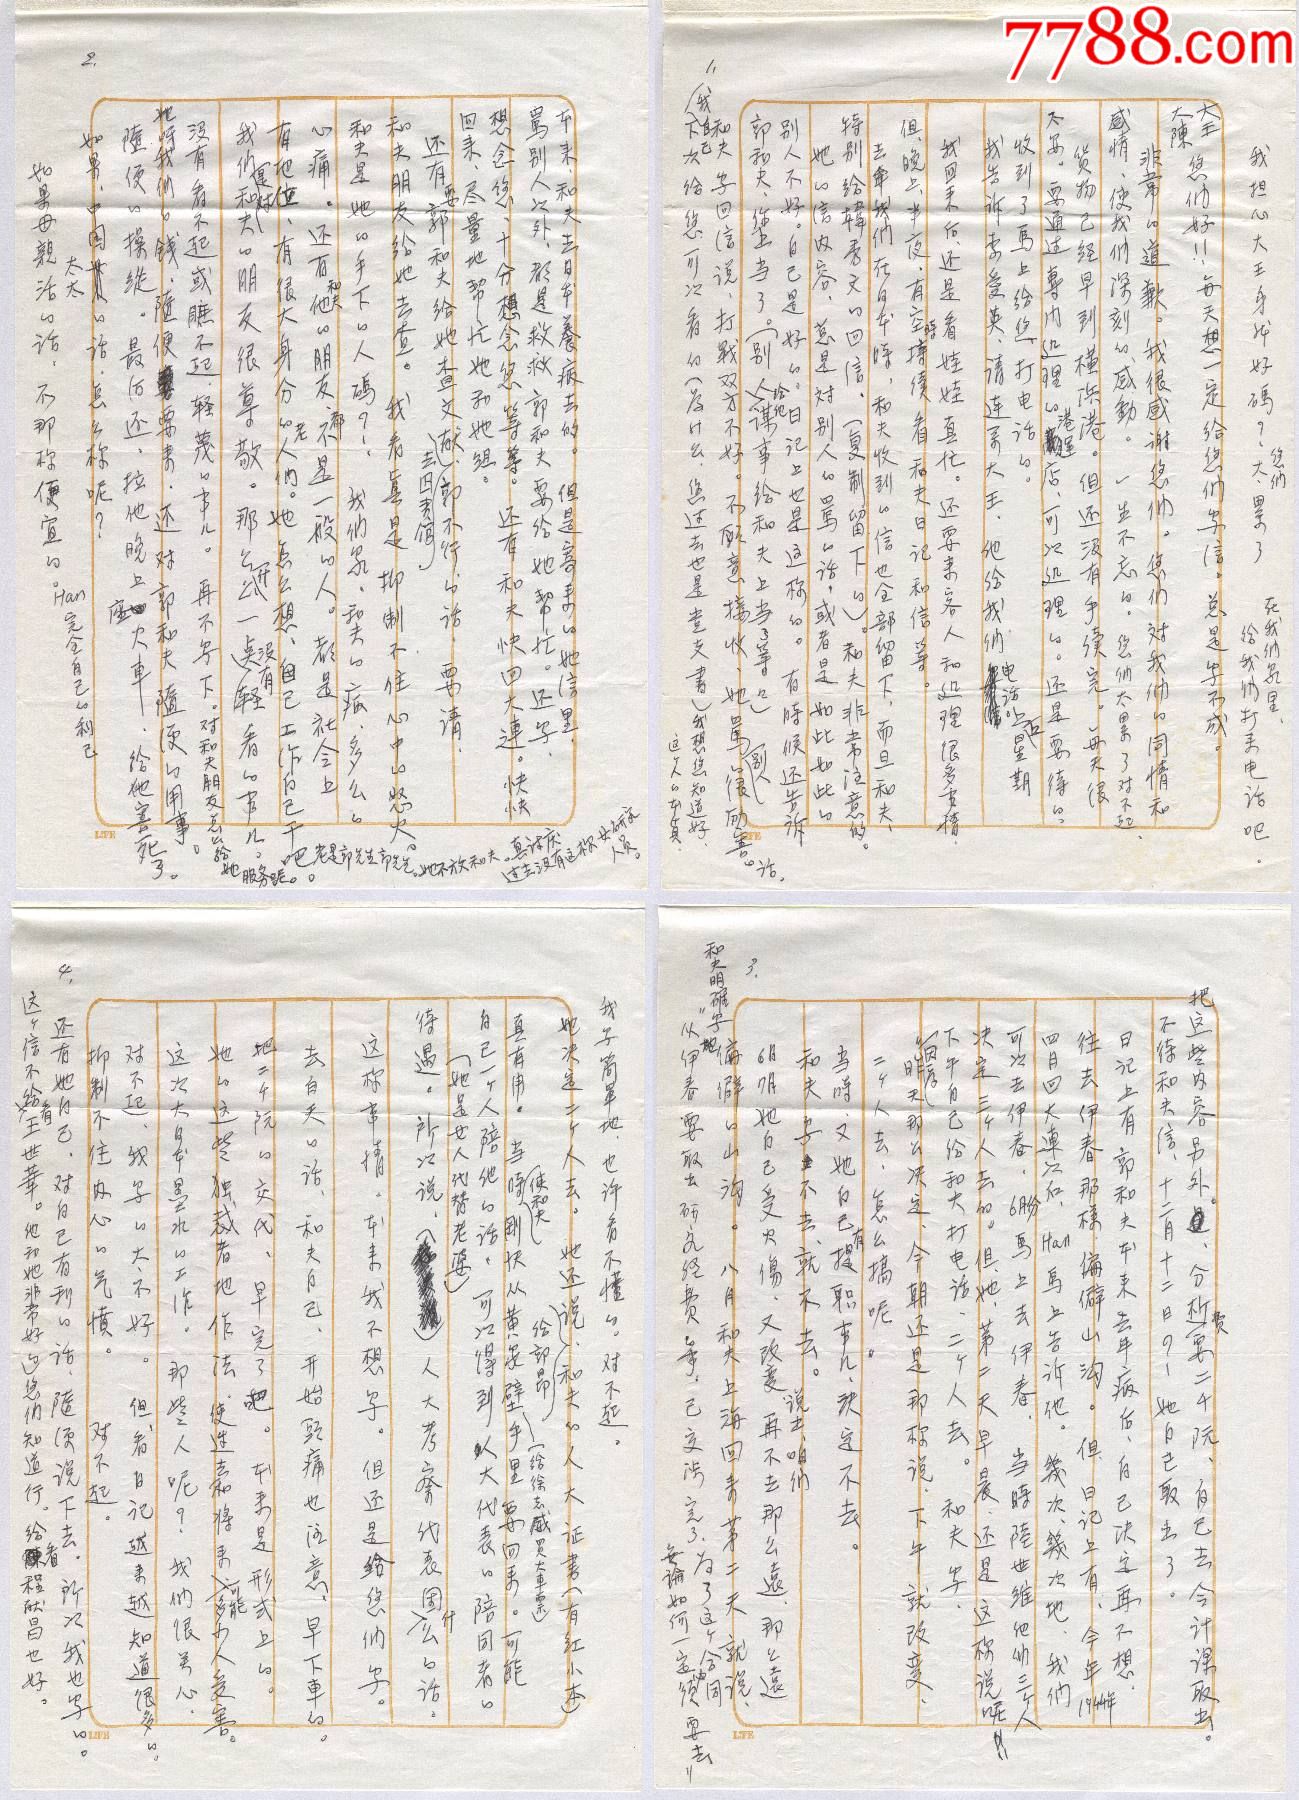 7788.com
1,
我担心大王身体好吗?太累了
给我们打来电话吧。
大王
大陳 您们好!!每天想一定给您们写信。总是写不成。
非常的道歉。我很感谢您们。您们对我们的同情和
感情,使我们深刻的感動。一生不忘的。您们太累了对不起
货物已经早到横浜港。但还没有手续完。每天很
不安。要通过専门処理的店,可以処理的。还是要待的。
收到了馬上给您打电话的。
我告诉李爱英,请连系大王,他给我们电话。上星期
我回来后,还是看娃娃真忙。还要来客人和処理很多事情
但,晚上、半夜、有空時继续看和夫日记和信等。
去年我们在日本時,和夫收到的信也全部留下,而且和夫、
特别给韓秀文的回信。(复制留下的)。和夫非常注意的。
她的信内容、总是对别人的罵的话。或者是如此如此的
别人不好。自己是好的。日记上也是这称的。有時候还告诉
郭和夫、您上当了。(别人謀事给和夫上当了等々)
和夫写回信说,打戰双方不好。不愿意接收、她罵的很历害。
2.
本来,和夫去日本養病去的。但是寄来的她信里,
罵别人以外,都是救救郭和夫要给她帮忙。还写,
想念您、十分想念您等等。还有和夫快回大連。快快
回来、尽量地帮忙她和她组。
还有要郭和夫给她查文献,郭不行的话,要请,
和夫朋友给她去查。我看真是抑制不住心中的怒火。
和夫是她的手下的人嗎?!我们家,和夫的病,多么的
心痛。还有他的朋友都不是一般的人。都是社会上
有地位、有很大身分的人们。她怎么想,自己工作自己干吧。
我们和夫的朋友很尊敬。那么一点没有輕看的事儿。
没有看不起或瞧不起、轻蔑的事儿。再不写下。
她呀我们的錢,隨便要来,还对郭和夫隨便的用事。
隨便的操縦。最后还、拉他晚上火車、给他害死了。
如果、中国太太的话、怎么称呢?
如果母親活的话,不那称便宜的。Han完全自己的利己
3.
把这些内容另外。分析费要二千阮,自己去会计课取出。
不待和夫信,十二月十二日?!她自己取出了。
日记上有郭和夫本来去年病后,自己决定再不想,
往去伊春那様偏僻山沟。但,日记上有、今年1994年
四月回大連以后、Han馬上告诉他。幾次、幾次地、我们
可以去伊春,6月份馬上去伊春。当時陸世維他们三个人
决定三个人去的。但她、第二天早晨、还是这称说呢!!
下午自己给和夫打电话、二个人去。和夫写,
(日记)昨天那么决定、今朝还是那称说、下午就改变、
二个人去,怎么搞呢。
当時,又她自己有提职事儿,决定不去。
和夫写不去,就不去。
6月7月她自己受火傷、又改变再不去那么遠、那么遠
偏僻的山沟。八月和夫上海回来第二天就说,
和夫明確地写"从伊春要取出研究经费等,己交涉完了、为了这个合同
無論如何一定须要去"
4.
我写简单地,也许看不懂的。对不起。
她决定二个人去。她还说,和夫的人大证書(有红小本)
真有用。当時剛快从黄泉壁手里要回来。可能
自己一个人陪他的话、可以得到人大代表的陪同者的
待遇。所以说,人大考察代表团什么的话。
这称事情。本来我不想写。但还是给您们写。
去白天的话、和夫自己,开始頭痛也注意、早下車的。
把二千阮的交代、早完了吧。本来是形式上的。
她的这些独裁者地作法,使过去和将来可能多少人受害。
这次大日本墨水的工作。那些人呢?我们很关心。
对不起、我写的太不好。但看日记越来越知道很多的。
抑制不住内心的气憤。对不起。
还有她自己、对自己有利的话、隨便说下去。所以我也写的。
这个信不给看王世華。他和她非常好的。您们知道行。给看程献昌也好。
LIFE
LIFE
LIFE
LIFE